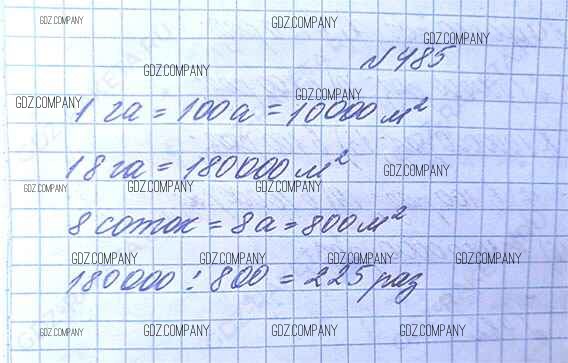 GDZ.COMPANY GDZ.COMPANY
№485 GDZ.COMPANY
GDZ.COMPANY GDZ.COMPANY
GDZ.COMPANY 1 га = 100а = 10000 м²
18 га = 180000 м² GDZ.COMPANY
GDZ.COMPANY GDZ.COMPANY GDZ.COMPANY
8 соток = 8а = 800 м²
GDZ.COMPANY GDZ.COMPANY GDZ.COMPANY GDZ.COMPANY
180000 : 800 = 225 раз
GDZ.COMPANY GDZ.COMPANY GDZ.COMPANY GDZ.COMPANY